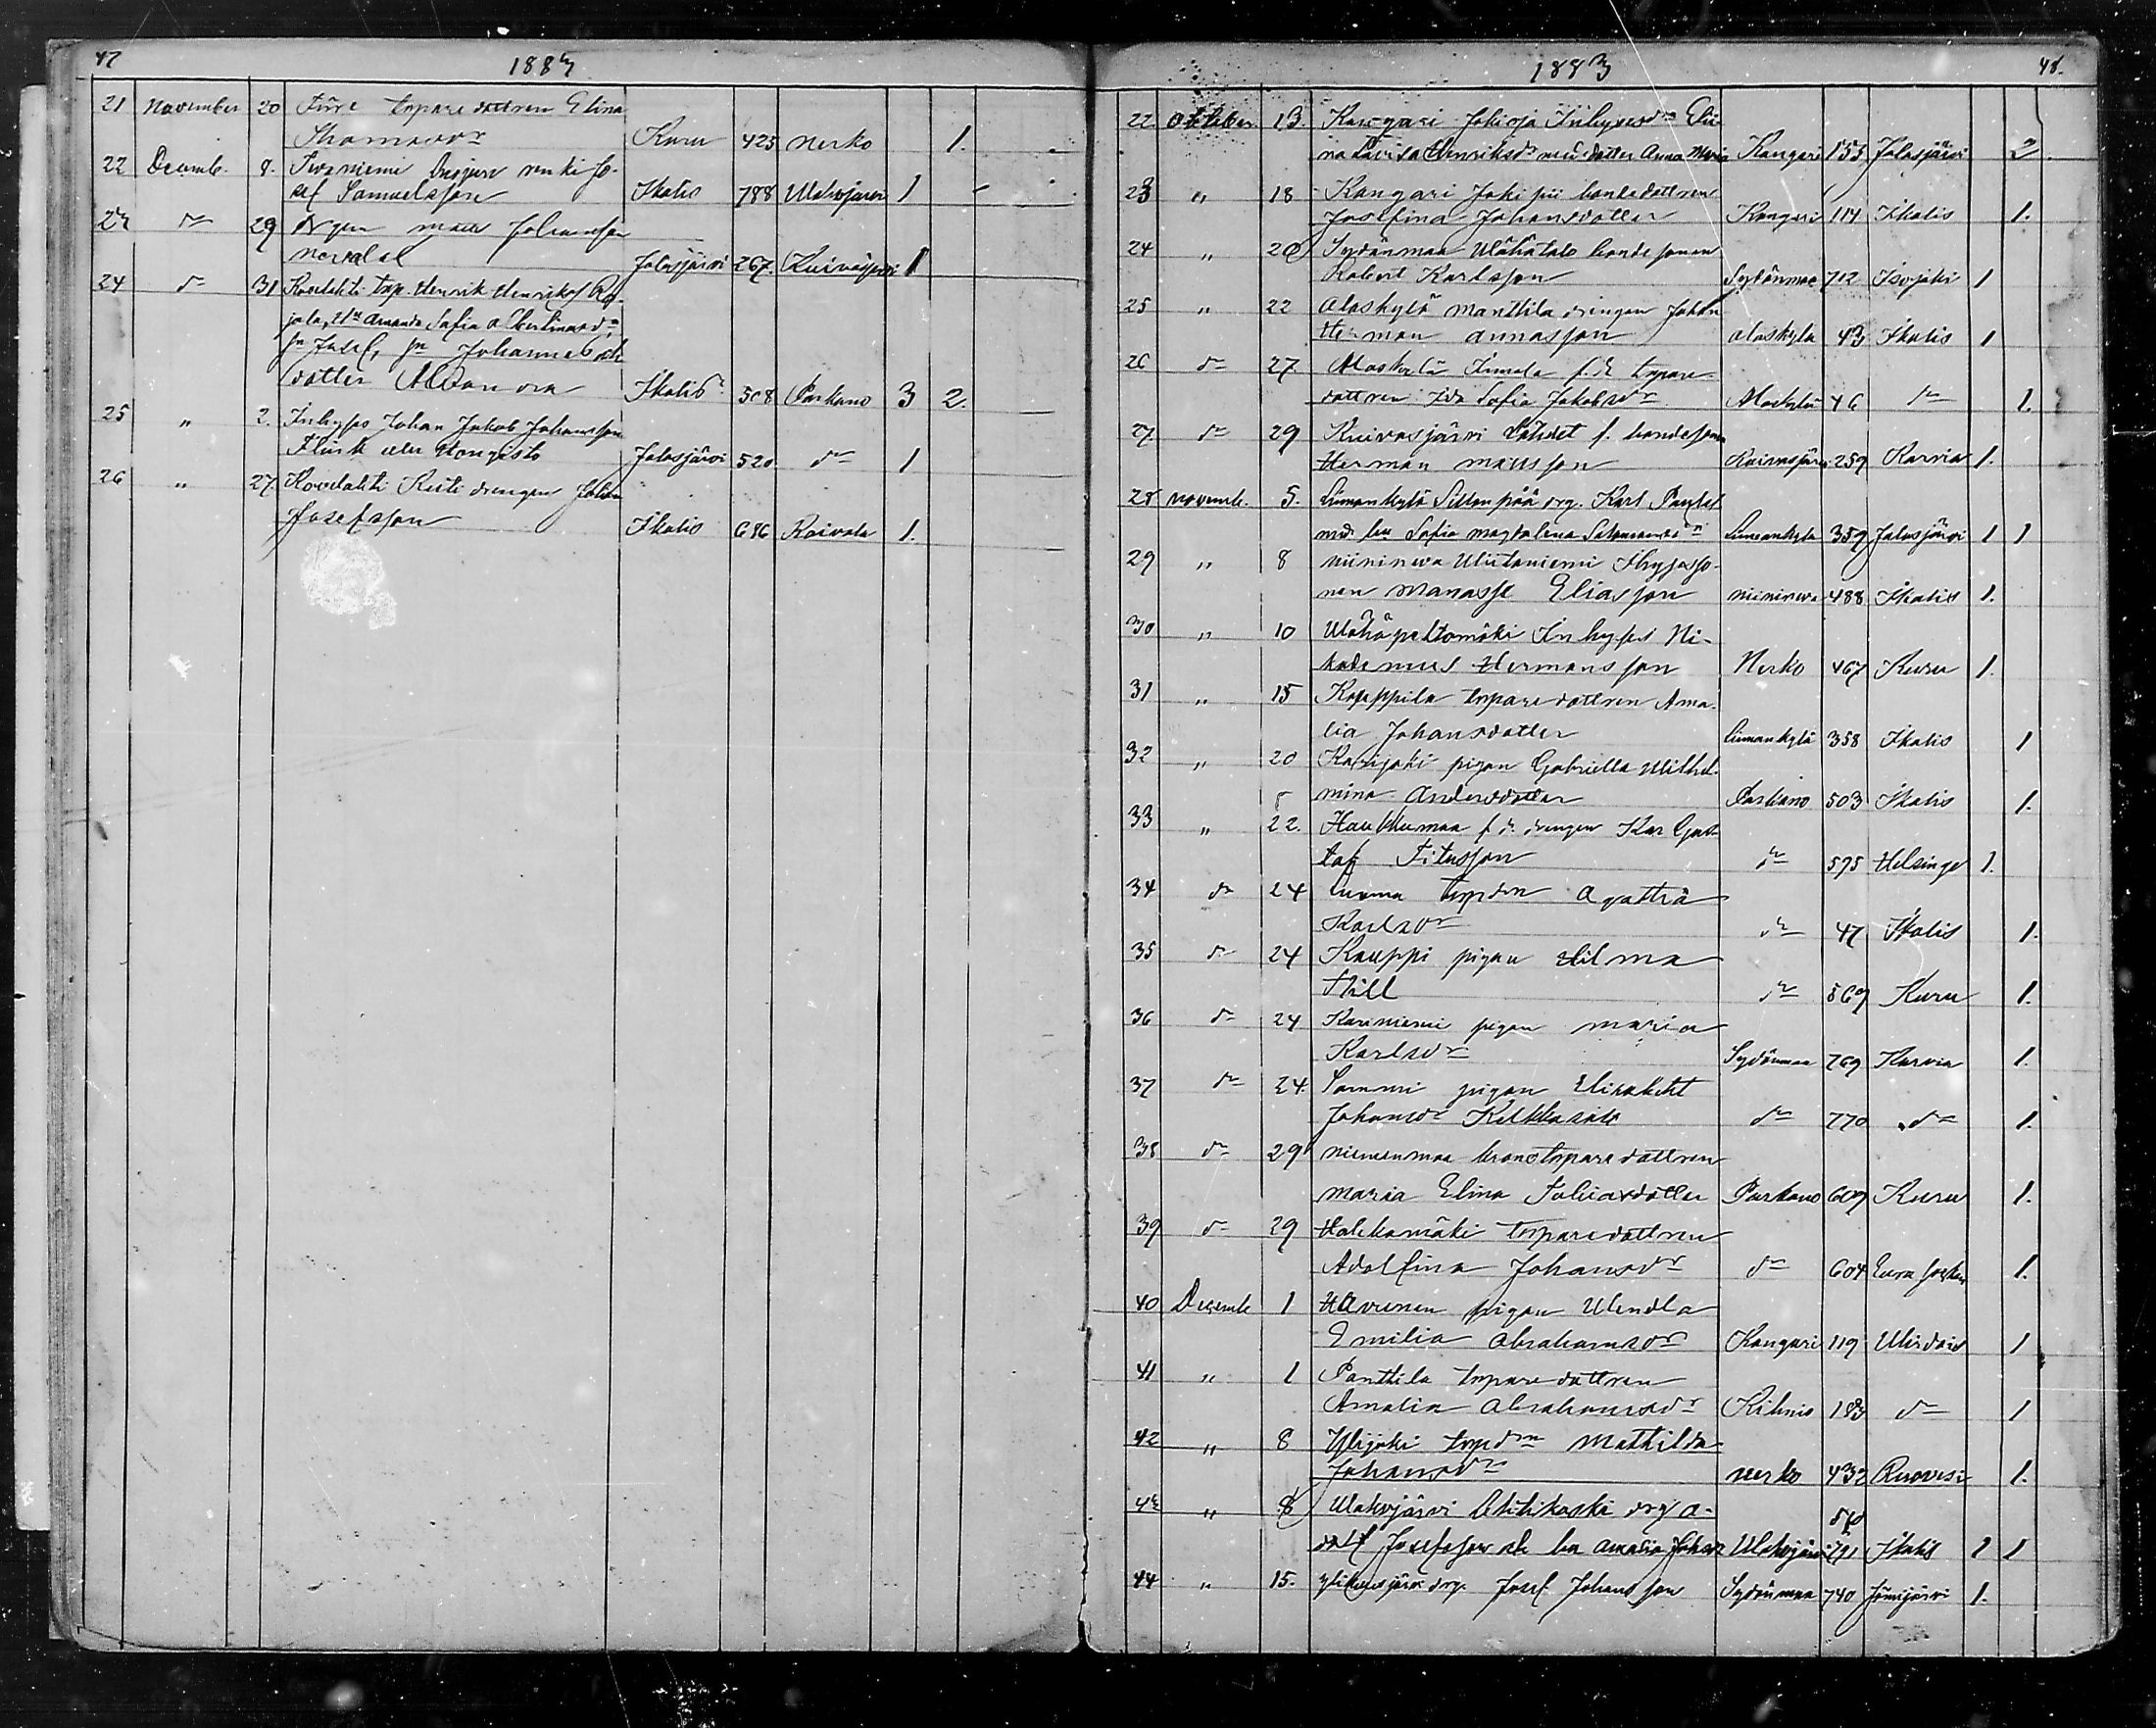 47
1883
21 November 20 Türe torparedottren Elina
Thomasdr Kuru 425 Nerko 1.
22 Decemb. 8. renki Jo-
sef Samuelsson Ikalis 788 1
23 dr 29 drgen Johansson
Jalasjärvi 267. Kuivasjärvi 1
24 dr 31 Kovelahti torp. Henrik Henriksson Ra-
jala, Amanda Sofia Albertinasdr
sn Josef, sn Johannes och
dotter Alexandra Ikalis 508 Parkano 3 2.
25 " 2. Inhyses Johan Jakob Johansson
Flink eller Hongisto Jalasjärvi 520 dr 1
26 " 27. Kovelahti Risti drengen Johan
Josefsson Ikalis 686 Raivala 1.
1883
48.
22. Oktober 13. Kangari Jokioja Inhysesdrn Eli-
na Lovisa Henriksdr med dotter Anna Maria Kangari 155 Jalasjärvi 2
23 " 18 Kangari Jokipii bondedottren
Josefina Johansdotter Kangari 114 Ikalis 1.
24 " 20 Sydänmaa Wähätalo bondesonen
Robert Karlsson Sydänmaa 712 Isojoki 1
25 " 22 Alaskylä Manttila drengen Johan
Herman Annasson Alaskylä 43 Ikalis 1
26 dr 27 Alaskylä f.d. torpare-
dottren Ida Sofia Jakobsdr Alaskylä 46 dr 1.
27 dr 29 Kuivasjärvi Lähdet f. bondesonen
Herman Mattsson Kuivasjärvi 259 Karvia 1.
28 Novemb. 5. Linnankylä Sillanpää drg. Karl
med hu Sofia Magdalena Linnankylä 359 Jalasjärvi 1 1
29 " 8 Niininewa Wiitaniemi
nen Manasse Eliasson Niininewa 488 Ikalis 1.
30 " 10 Wähäpeltomäki Inhyses Ni-
kodemus Hermansson Nerko 467 Kuru 1.
31 " 15 Kaappila torparedottren Ama-
lia Johansdotter Linnankylä 358 Ikalis 1
32 " 20 Karijoki pigan Gabriella Wilhel-
mina Andersdotter Parkano 503 Ikalis 1.
33 " 22. Haukkumaa f.d. drengen Karl Gus-
taf Titusson dr 595 Helsinge 1.
34 dr 24 Luoma torpdrn Agatha
Karlsdr dr 47 Ikalis 1.
35 dr 24 Kauppi pigan Hilma
Still dr 569 Kuru 1.
36 dr 24 Kariniemi pigan Maria
Karlsdr Sydänmaa 769 Karvia 1.
37 dr 24. Sammi pigan Elisabeht
Johansdr dr 770 dr 1.
38 dr 29 Niemenmaa kronotorparedottren
Maria Elina Juliasdotter Parkano 609 Kuru 1.
39 dr 29 Hakkamäki torparedottren
Adolfina Johansdr dr 604 1.
40 Decemb 1 Havunen pigan Wendla
Emilia Abrahamsdr Kangari 119 Wirdois 1
41 " 1 Panttila torparedottren
Amalia Abrahamsdr Kihniö 183 dr 1
42 " 8 Ylijoki torpdrn Mathilda
Johansdr Nerko 432 Ruovesi 1.
43 " 8 Wahojärvi drg A-
dolf Josefsson och hu Amalia Johansdr Wahojärvi 791 Ikalis 1 1
44 " 15. drg. Josef Johansson Sydänmaa 740 Jämijärvi 1.